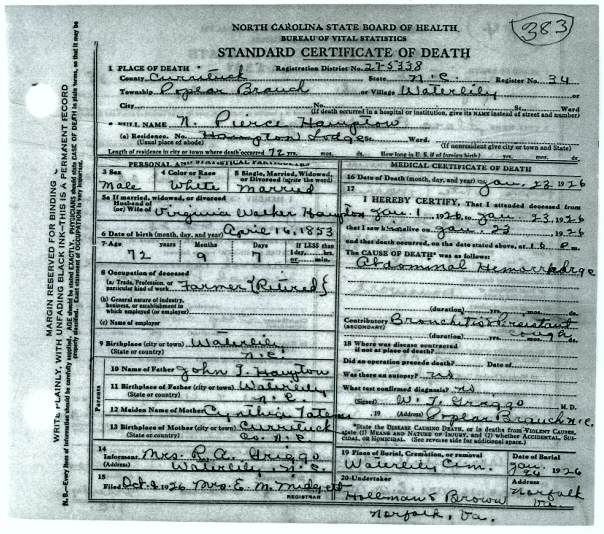 383
NORTH CAROLINA STATE BOARD OF HEALTH
BUREAU OF VITAL STATISTICS
STANDARD CERTIFICATE OF DEATH
1 PLACE OF DEATH Registration District No. 27-5338
County Currituck State N.C. Register No. 34
Township Poplar Branch or Village Waterlily or
City No. St. Ward
(If death occurred in a hospital or institution, give its NAME instead of street and number)
2 FULL NAME N. Pierce Hampton
(a) Residence. No. Hampton Lodge St. Ward.
(Usual place of abode) (If nonresident give city or town and State)
Length of residence in city or town where death occurred 72 yrs. mos. ds. How long in U. S., if of foreign birth? yrs. mos. ds.
PERSONAL AND STATISTICAL PARTICULARS
3 Sex Male
4 Color or Race White
5 Single, Married, Widowed, or Divorced (write the word) Married
5a If married, widowed, or divorced
Husband of
(or) Wife of Virginia Walker Hampton
6 Date of birth (month, day, and year) April 16, 1853
7 Age Years Months Days If LESS than
72 9 7 1 day, hrs.
or min.
8 Occupation of deceased
(a) Trade, Profession, or particular kind of work Farmer (Retired)
(b) General nature of industry, business, or establishment in which employed (or employer)
(c) Name of employer
9 Birthplace (city or town) Waterlily
(State or country) N.C.
Parents
10 Name of Father John T. Hampton
11 Birthplace of Father (city or town) Waterlily
(State or country) N.C.
12 Maiden Name of Mother Cynthia Tatem
13 Birthplace of Mother (city or town) Currituck
(State or country) Co. N.C.
14
Informant Mrs. R.A. Griggs
(Address) Waterlily N.C.
15
Filed Oct. 2 1926 Mrs. E. M. Midgett
REGISTRAR
MEDICAL CERTIFICATE OF DEATH
16 Date of Death (month, day, and year) Jan. 23 1926
17
I HEREBY CERTIFY, That I attended deceased from
Jan. 1 1926, to Jan. 23 1926
that I saw him alive on Jan. 23 1926
and that death occurred, on the date stated above, at p m.
The CAUSE OF DEATH* was as follows:
Abdominal Hemorrhage
(duration) yrs. mos. ds.
Contributory Bronchitis & Persistant
(SECONDARY) cough
(duration) yrs. mos. ds.
18 Where was disease contracted
if not at place of death?
Did an operation precede death? Date of
Was there an autopsy? no
What test confirmed diagnosis? no
(Signed) W. T. Griggs M. D.
19 (Address) Poplar Branch N.C.
*State the DISEASE CAUSING DEATH, or in deaths from VIOLENT CAUSES, state (1) MEANS AND NATURE OF INJURY, and (2) whether ACCIDENTAL, SUICIDAL, or HOMICIDAL. (See reverse side for additional space.)
19 Place of Burial, Cremation, or removal Date of Burial
Waterlily Cem. Jan. 24 1926
20 Undertaker Address
Hollman & Brown Norfolk Va.
Norfolk, Va.
MARGIN RESERVED FOR BINDING
WRITE PLAINLY, WITH UNFADING BLACK INK—THIS IS A PERMANENT RECORD
N. B.—Every item of information should be carefully supplied. AGE should be stated EXACTLY. PHYSICIANS should state CAUSE OF DEATH in plain terms, so that it may be properly classified. Exact statement of OCCUPATION is very important.